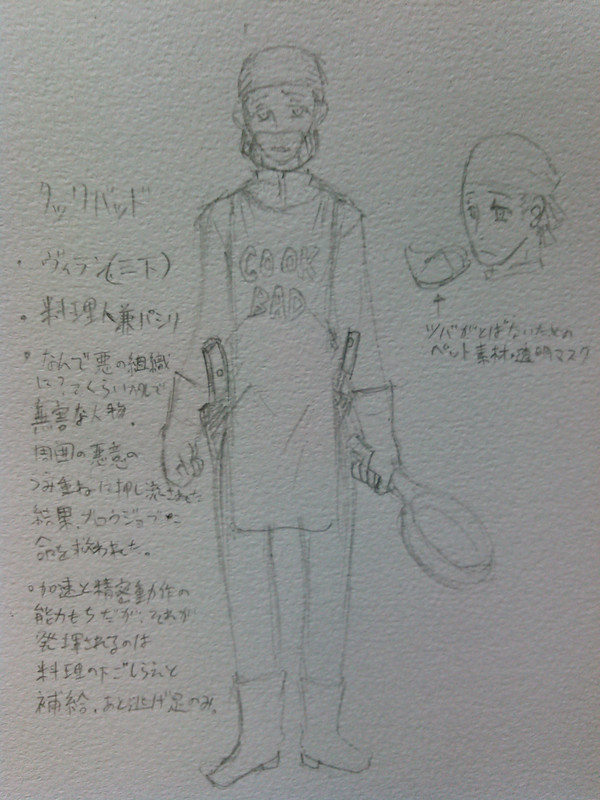 クックバッド
・ヴィラン(三下)
。料理人兼パシリ
。なんで悪の組織
に？てくらい
無害な人物。
周囲の悪意の
つみ重ねに押し流された
結果、ブロウジョブに
命を救われた。
。加速と精密動作の
能力もちだが、それが
発揮されるのは
料理の下ごしらえと
補給、あと逃げ足のみ。
COOK
BAD
↑
ツバがとばないための
ペット素材・透明マスク